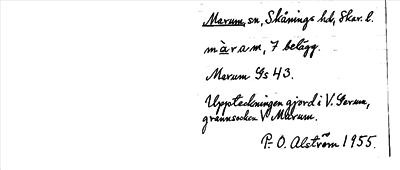 Marum, sn, Skånings hd, Skar. l.
màram, 7 belägg.
Marum Gs 43.
Uppteckningen gjord i V. Gerum,
grannsocken V Marum.
P. O. Alström 1955.